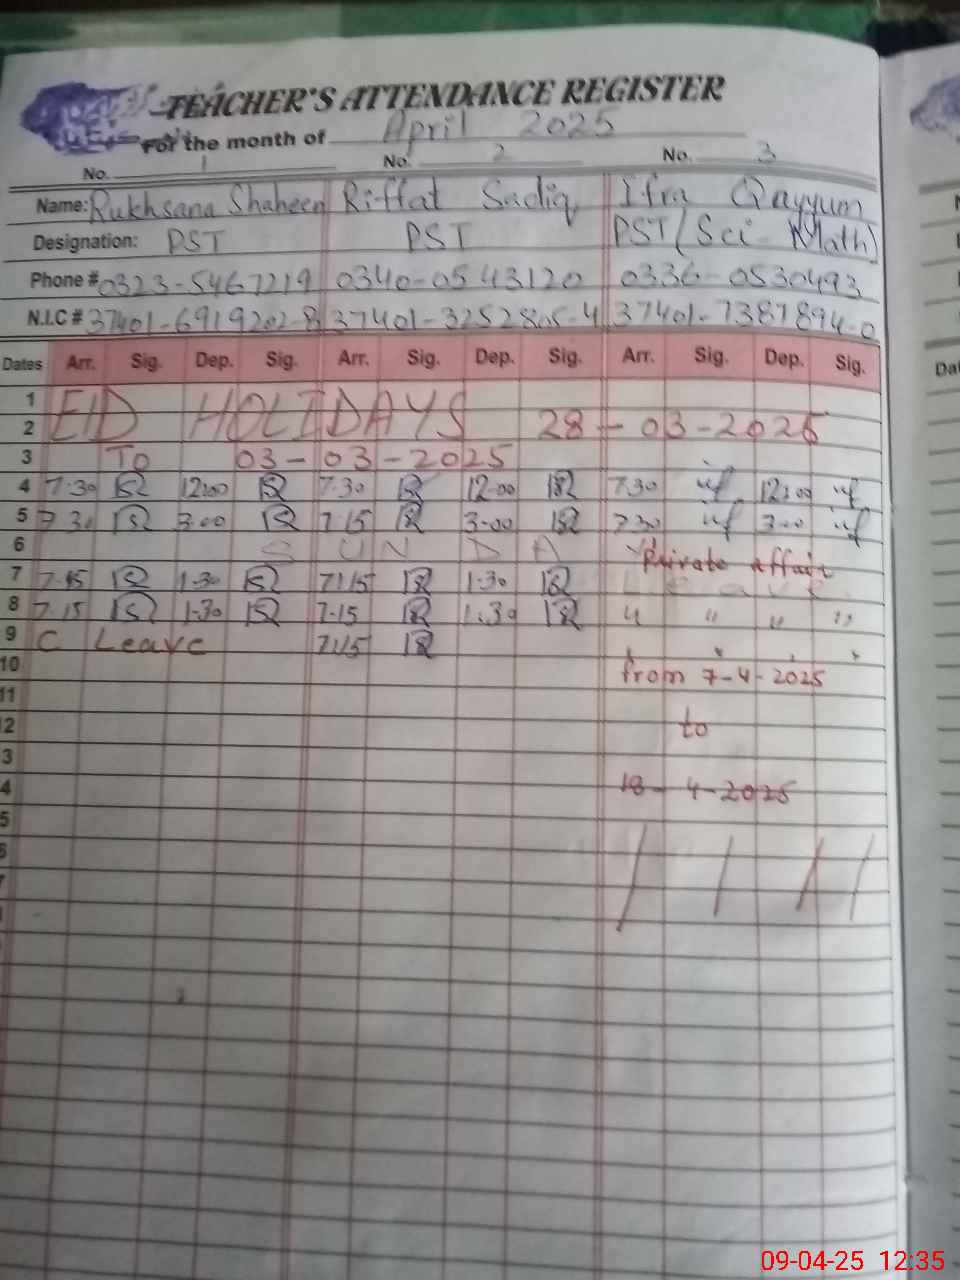 TEACHER'S ATTENDANCE REGISTER
For the month of April 2025
No. 1 No. 2 No. 3
Name: Rukhsana Shaheen Riffat Sadiq Ifra Qayyum
Designation: PST PST PST (Sci-Math)
Phone # 0323-5467219 0340-0543120 0336-0530493
N.I.C # 37401-6919202-8 37401-3252805-4 37401-7387894-0
Dates Arr. Sig. Dep. Sig. Arr. Sig. Dep. Sig. Arr. Sig. Dep. Sig.
1
2 EID HOLIDAYS 28-03-2025
3 To 03-03-2025
4 7.30 12:00 7.30 12.00 7.30 12:00
5 7 30 3.00 7.15 3-00 7 30 3.00
6 S U N D A Y Private Affair
7 7.45 1.30 7:15 1.30 Leave
8 7.15 1.30 7.15 1.30 " " " "
9 C Leave 7:15
10 from 7-4-2025
11
2 to
3
4 18-4-2025
5
6
7
Dat
09-04-25 12:35